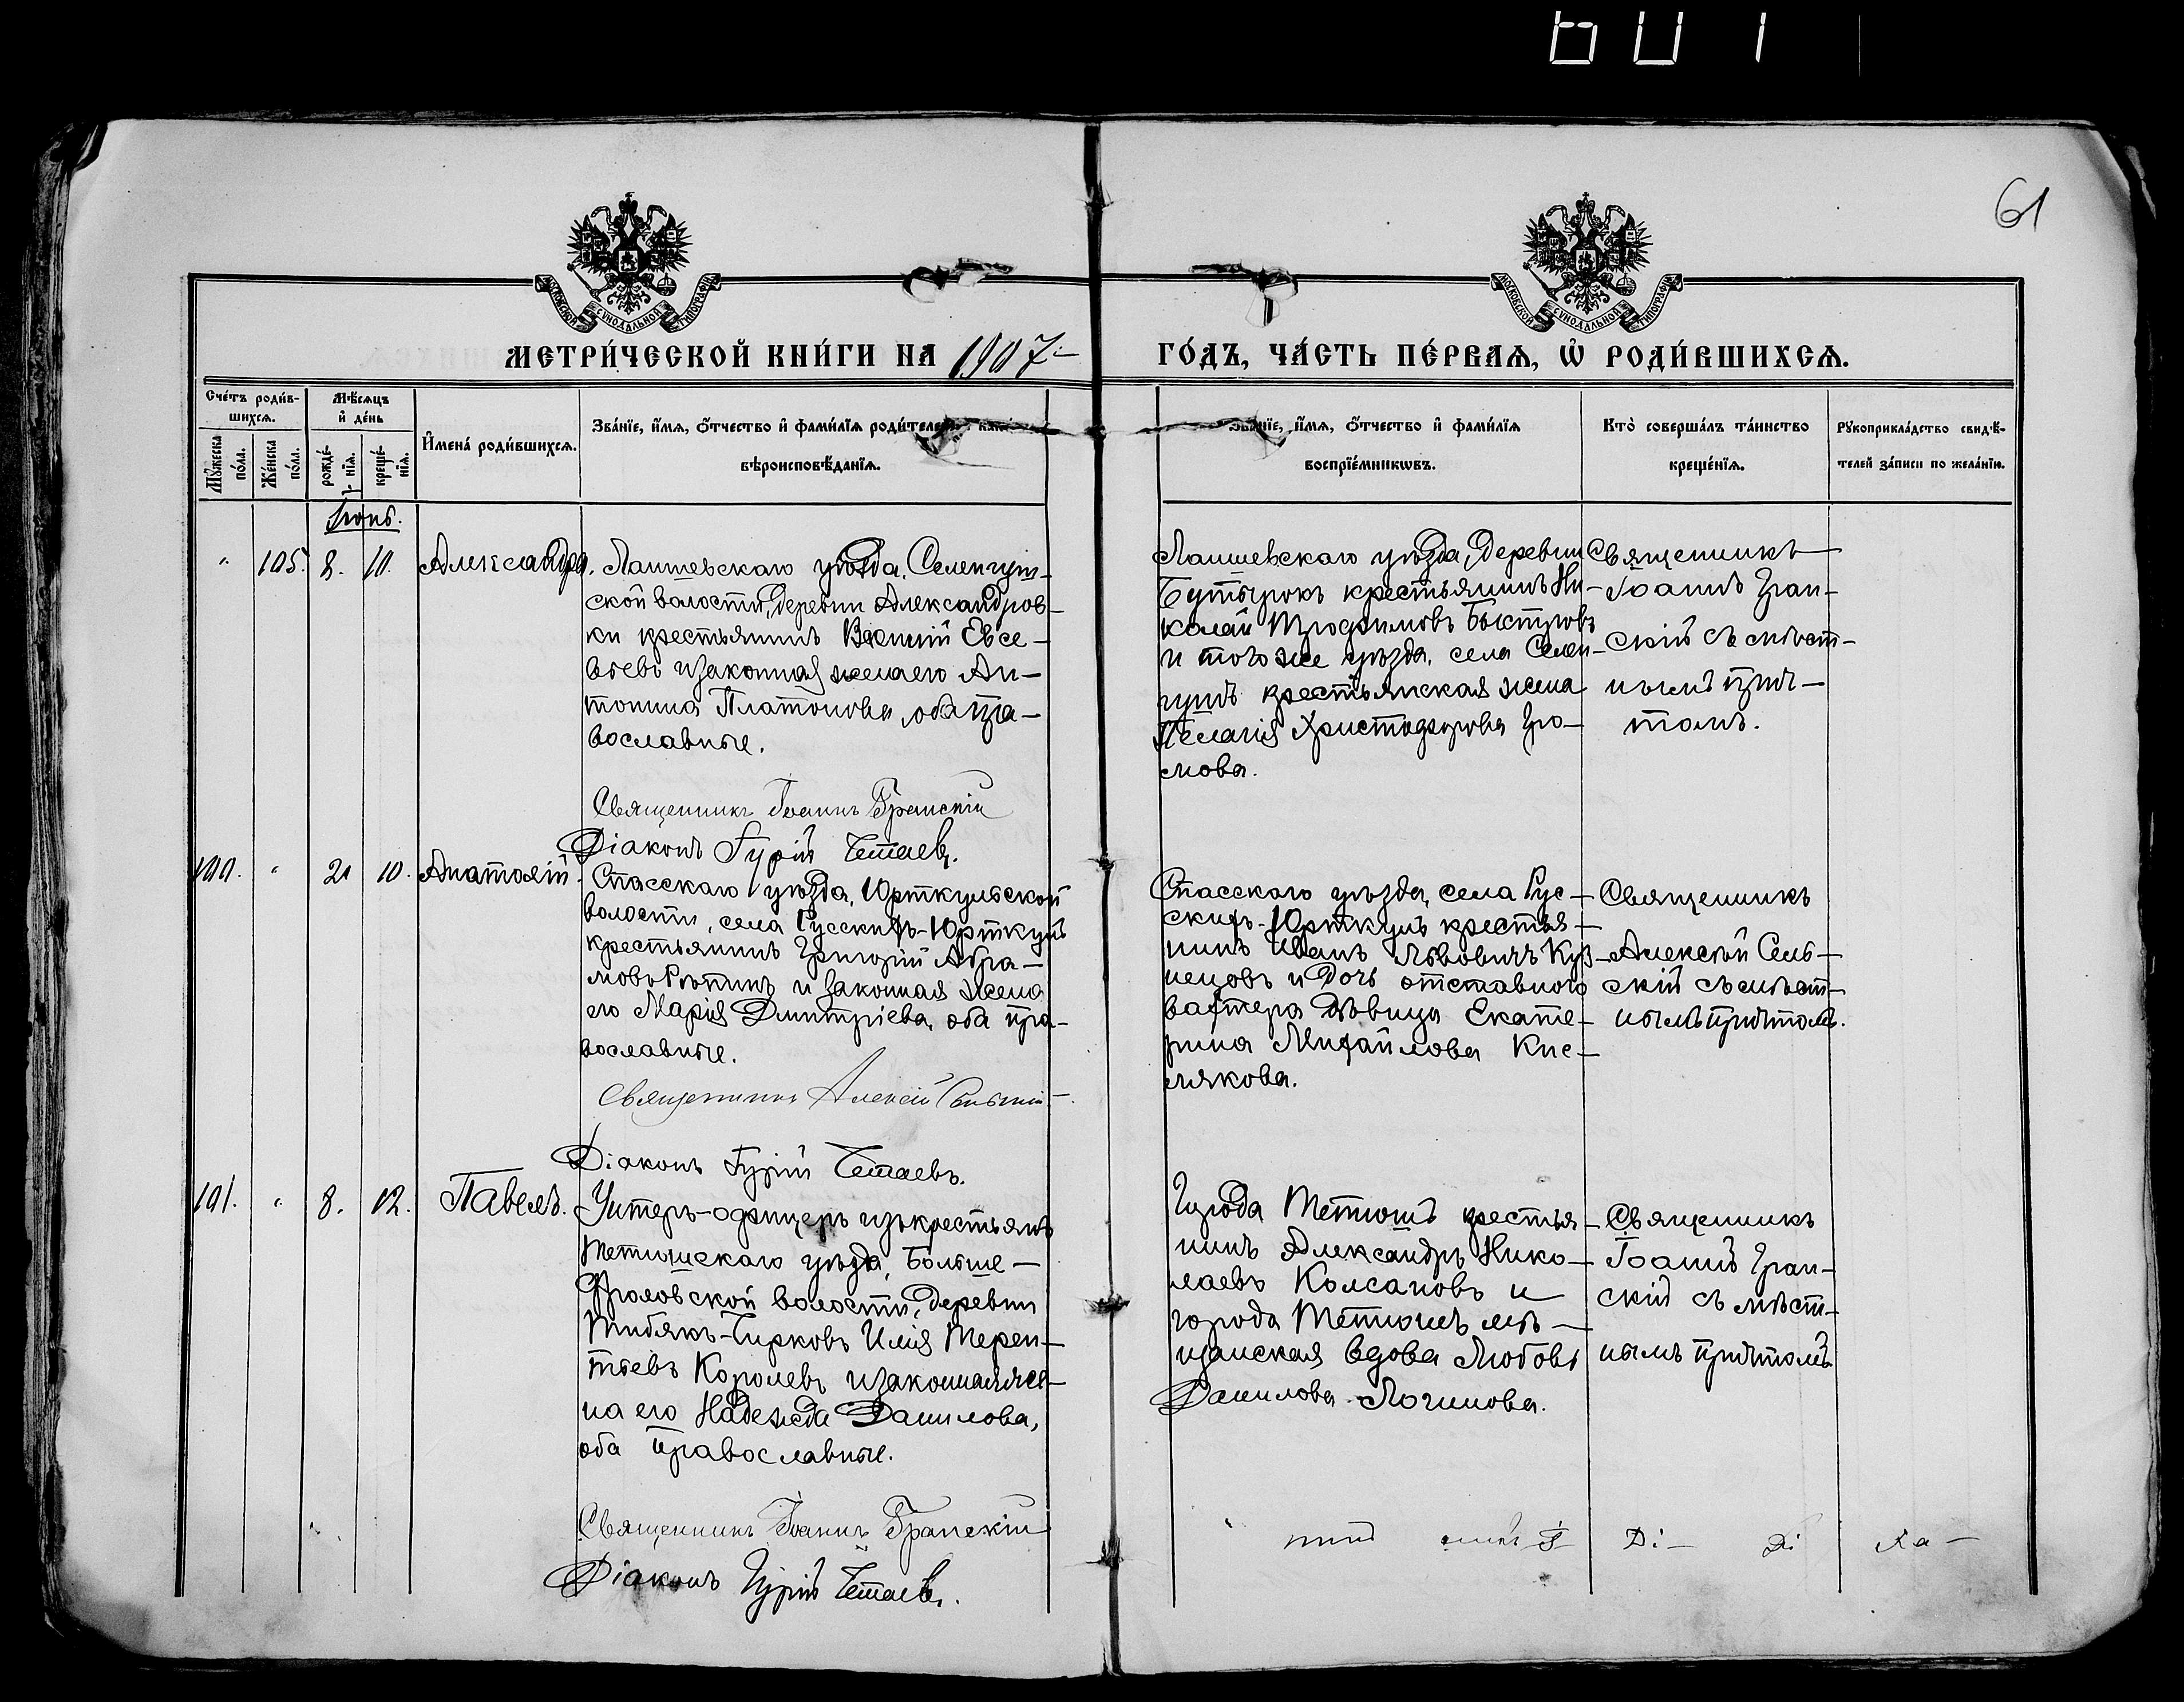 601
61
МОСКОВСКОЙ СѴНОДАЛЬНОЙ ТИПОГРАФІИ
МОСКОВСКОЙ СѴНОДАЛЬНОЙ ТИПОГРАФІИ
МЕТРИ́ЧЕСКОЙ КНИ́ГИ НА 1907-
ГО́ДЪ, ЧА́СТЬ ПЕ́РВАЯ, Ѡ҆ РОДИ́ВШИХСЯ.
Сче́тъ роди́в-
шихся.
Мꙋ́жеска по́ла.
Же́нска по́ла.
Мѣ́сяцъ
и҆ де́нь
рожде́-
нїя.
креще́-
нїя.
И҆мена̀ роди́вшихся.
Зва́нїе, и҆́мя, ѻ҆́тчество и҆ фами́лїя роди́телей,
вѣроисповѣ́данїя.
Зва́нїе, и҆́мя, ѻ҆́тчество и҆ фами́лїя
воспрїе́мникѡвъ.
Кто̀ соверша́лъ та́инство
креще́нїя.
Рꙋкоприкла́дство свидѣ́-
телей за́писи по жела́нїю.
" 105. 8. 10. Александра.
Лаишевскаго уѣзда, Селенгуш-
ской волости, деревни Александров-
ки крестьянинъ Евсе-
вьевъ и законная жена его Ан-
тонина Платонова, оба пра-
вославные.
Священникъ Іоаннъ Гранскій
Діаконъ Гурій Четаевъ.
Лаишевскаго уѣзда, деревни
Бутырокъ крестьянинъ Ни-
колай Трофимовъ Быстровъ
и того же уѣзда, села Селен-
гушъ крестьянская жена
Пелагія Христофорова Гро-
мова.
Священникъ
Іоаннъ Гран-
скій съ мѣст-
нымъ прич-
томъ.
100. " 21 10. Анатолій.
Спасскаго уѣзда, Юрткульской
волости, села Русскихъ-Юрткуль
крестьянинъ Григорій Абра-
мовъ Рѣпинъ и законная жена
его Марія Димитріева, оба пра-
вославные.
Священникъ Алексій Сельскій
Діаконъ Гурій Четаевъ.
Спасскаго уѣзда, села Рус-
скихъ-Юрткуль крестья-
нинъ Иванъ Львовичъ Куз-
нецовъ и дочь отставного
вахтера дѣвица Екате-
рина Михайлова Кис-
лякова.
Священникъ
Алексѣй Сель-
скій съ мѣст-
нымъ причтомъ.
101. " 8. 12. Павелъ.
Унтеръ-офицеръ изъ крестьянъ
Тетюшскаго уѣзда, Больше-
Фроловской волости, деревни
Тибякъ-Чирковъ Илія Терен-
тьевъ Королевъ и законная же-
на его Надежда Данилова,
оба православные.
Священникъ Іоаннъ Гранскій
Діаконъ Гурій Четаевъ.
Города Тетюшъ крестья-
нинъ Александръ Нико-
лаевъ Колсановъ и
города Тетюшъ мѣ-
щанская вдова Любовь
Данилова Логинова.
Священникъ
Іоаннъ Гран-
скій съ мѣст-
нымъ причтомъ
Ді- Ді Ка-